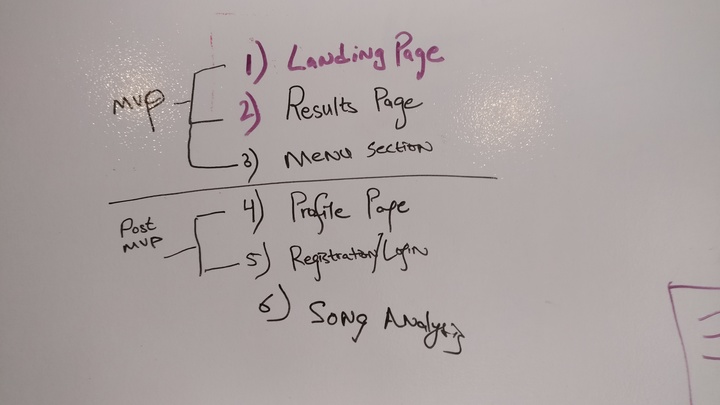 MVP
1) Landing Page
2) Results Page
3) Menu Section
Post
MVP
4) Profile Page
5) Registration/Login
6) Song Analysis